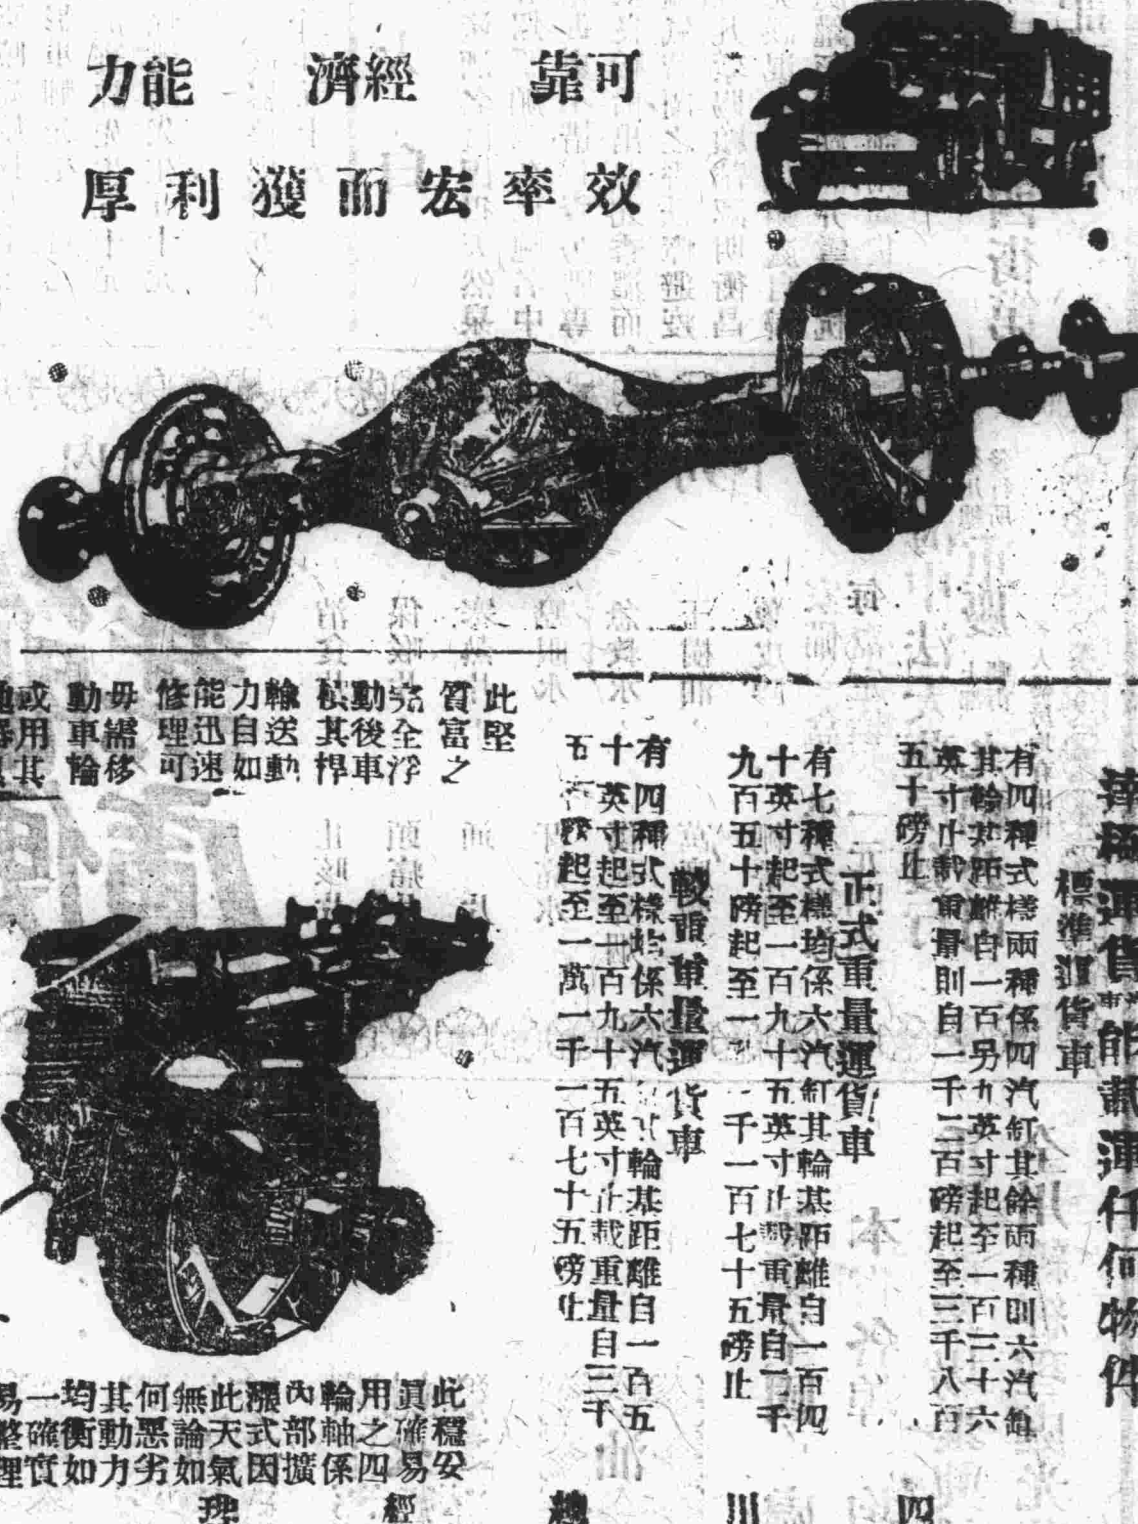 可靠 經濟 能力
效率宏而獲利厚
運貨車能載運任何物件
標準運貨車
有四種式樣兩種係四汽缸其餘兩種則六汽缸
其輪基距離自一百另九英寸起至一百三十六
英寸止載重量則自一千二百磅起至三千八百
五十磅止
正式重量運貨車
有七種式樣均係六汽缸其輪基距離自一百四
十英寸起至一百九十五英寸止載重量自二千
九百五十磅起至一 千一百七十五磅止
較重重量運貨車
有四種式樣均係六汽 輪基距離自一百五
十英寸起至 百九十五英寸止載重量自三千
五 起至一萬一千一百七十五磅止
此堅
質富之
完全浮
動後車
其桿
輸送動
力自如
能迅速
修理可
毋需移
動車輪
或用其
此穩安
眞確易
用之四
輪軸係
內部擴
漲式因
此天氣
無論如
何惡劣
其動力
均衡如
一確實
易整理
四川總經理